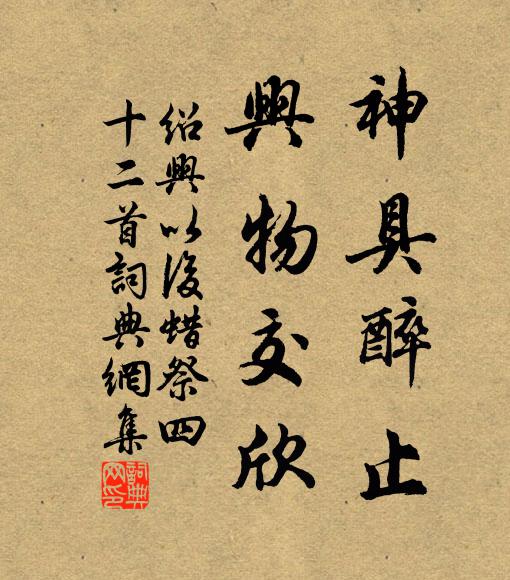 神具醉止
興物交欣
紹興以後蜡祭四
十二首詞典網集
詞典
网印